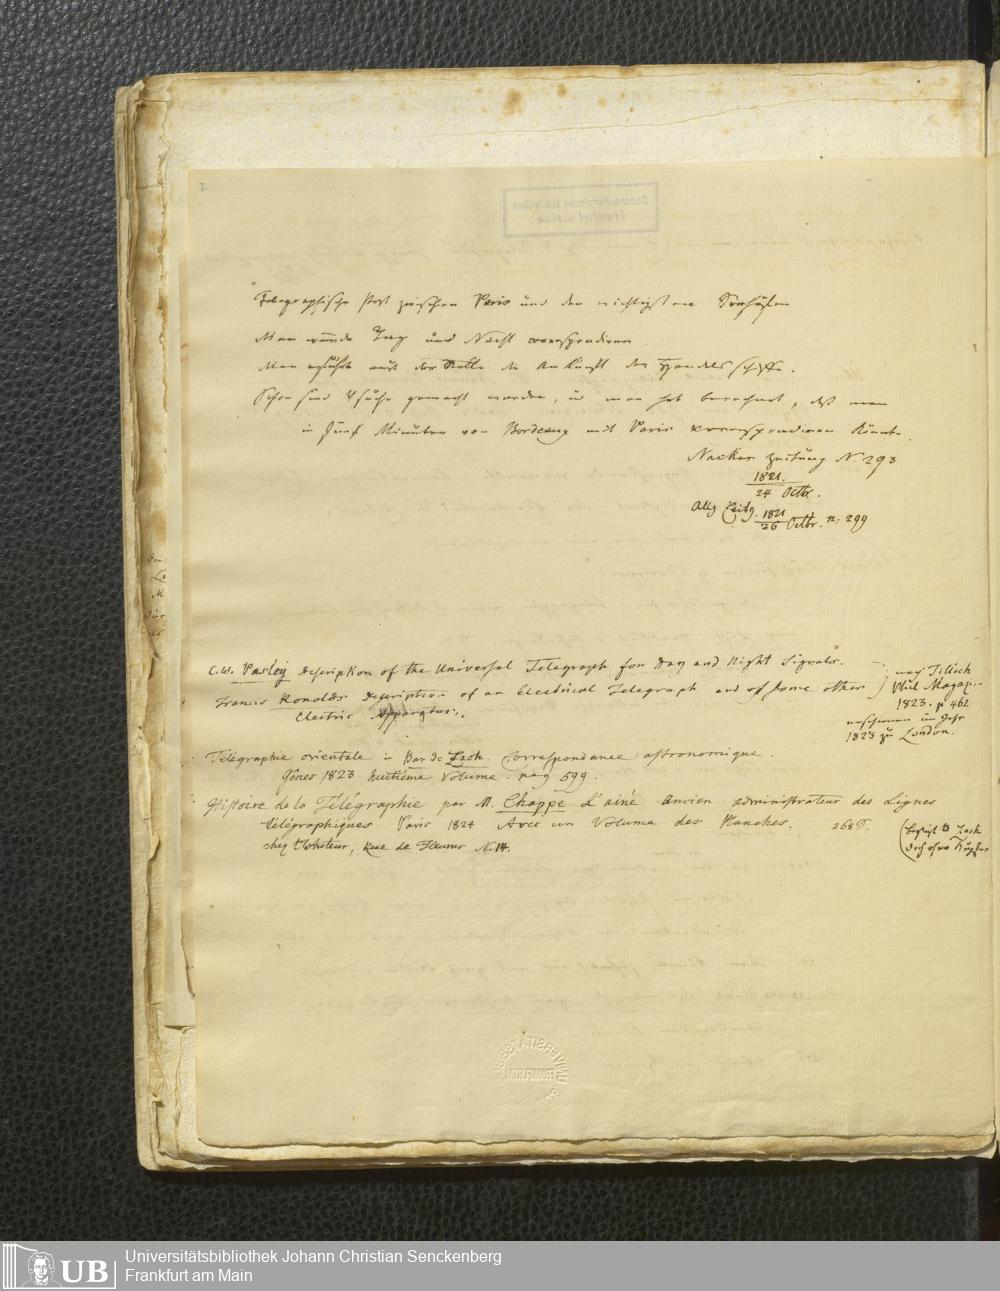 2
Telegraphische Post zwischen Paris und den wichtigsten Seehäfen
Man würde Tag und Nacht correspondiren
Man erführe auf der Stelle die Ankunft der Handelsschiffe.
Schon sind Versuche gemacht worden, und man hat berechnet, daß man
in fünf Minuten von Bordeaux mit Paris correspondiren könnte.
Neckar Zeitung N. 293
1821.
24 Octbr.
Allg Zeitg. 1821
26 Octbr. n: 299
C.W. Pasley Description of the Universal Telegraph for Day and Night Signals.
Francis Ronolds Description of an Electrical Telegraph and of some other
Electric Apparatus.
nach Tilloch
Phil Magaz.
1823. p 462
erschienen im Jahr
1823 zu London.
Télégraphie orientale in Bar de Zach. Correspondance astronomique.
Gênes 1823 huitième Volume. pag 599.
Histoire de la Télégraphie par M. Chappe L'ainé ancien administrateur des Lignes
télégraphiques Paris 1824 Avec un Volume des Planches. 268
chez l'Auteur, Rue de N. 14.
Zach
doch ohne Kupfer
UNIVERSITÄTSBIBL.
FRANKFURT
UB
Universitätsbibliothek Johann Christian Senckenberg
Frankfurt am Main